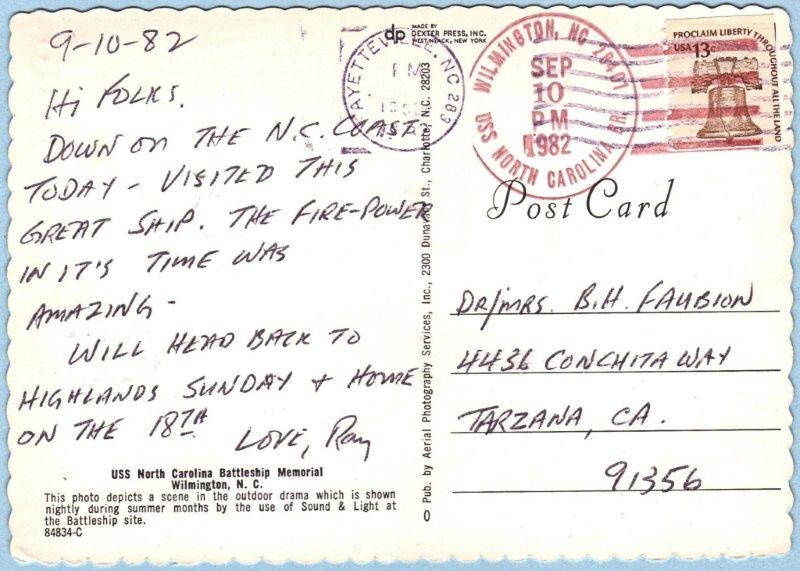 9-10-82
Hi FOLKS.
DOWN ON THE N.C. COAST
TODAY - VISITED THIS
GREAT SHIP. THE FIRE-POWER
IN IT'S TIME WAS
AMAZING -
WILL HEAD BACK TO
HIGHLANDS SUNDAY + HOME
ON THE 18TH
LOVE, Ray
USS North Carolina Battleship Memorial
Wilmington, N. C.
This photo depicts a scene in the outdoor drama which is shown
nightly during summer months by the use of Sound & Light at
the Battleship site.
84834-C
dp
MADE BY
DEXTER PRESS, INC.
WEST NYACK, NEW YORK
Pub. by Aerial Photography Services, Inc., 2300 Dunavant St., Charlotte, N.C. 28203
FAYETTEVILLE, NC 283
PM
WILMINGTON, NC
SEP
10
PM
1982
USS NORTH CAROLINA BR.
PROCLAIM LIBERTY THROUGHOUT ALL THE LAND
USA 13c
Post Card
DR/MRS. B.H. FAUBION
4436 CONCHITA WAY
TARZANA, CA.
91356